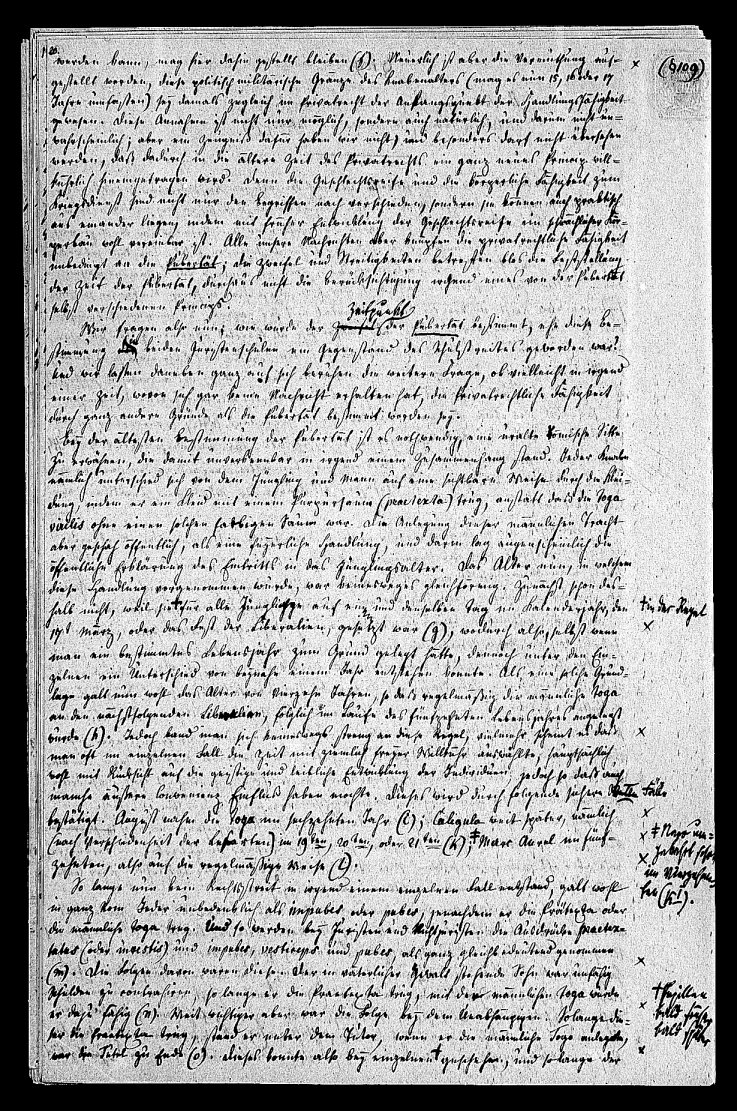 20.
(§109)
werden kann, mag hier dahin gestellt bleiben (f). Neuerlich ist aber die Vermuthung auf-
gestellt worden, diese politisch militärische Gränze des Knabenalters (mag es nun 15, 16 oder 17
Jahre umfassen) sey damals zugleich im Privatrecht der Anfangspunkt der Handlungsfähigkeit
gewesen. Diese Annahme ist nicht nur möglich, sondern auch natürlich, und darum nicht un-
wahrscheinlich; aber ein Zeugniß dafür haben wir nicht, und besonders darf nicht übersehen
werden, daß dadurch in die ältere Zeit des Privatrechts ein ganz neues Princip will-
kührlich hineingetragen wird. Denn die Geschlechtsreife und die körperliche Fähigkeit zum
Kriegsdienst sind nicht nur den Begriffen nach verschieden, sondern sie können auch praktisch
aus einander liegen, indem mit früher Entwicklung der Geschlechtsreife ein schwächlicher Kör-
perbau wohl vereinbar ist. Alle unsere Nachrichten aber knüpfen die privatrechtliche Fähigkeit
unbedingt an die Pubertät; die Zweifel und Streitigkeiten betreffen blos die Feststellung
der Zeit der Pubertät, durchaus nicht die Berücksichtigung irgend eines von der Pubertät
selbst verschiedenen Princips.
Wir fragen also nun; wie wurde der Zeitpunkt der Pubertät bestimmt, ehe diese Be-
stimmung beiden Juristenschulen ein Gegenstand des Schulstreites geworden war?
Und wir lassen daneben ganz auf sich beruhen die weitere Frage, ob vielleicht in irgend
einer Zeit, wovon sich gar keine Nachricht erhalten hat, die privatrechtliche Fähigkeit
durch ganz andere Gründe als die Pubertät bestimmt worden sey.
Bey der ältesten Bestimmung der Pubertät ist es nothwendig, eine uralte Römische Sitte
zu erwähnen, die damit unverkennbar in irgend einem Zusammenhang stand. Jeder Knabe
nämlich unterschied sich von dem Jüngling und Mann auch auf eine sichtbare Weise durch die Klei-
dung, indem er ein Kleid mit einem Purpursaum (praetexta) trug, anstatt daß die Toga
virilis ohne einen solchen farbigen Saum war. Die Anlegung dieser männlichen Tracht
aber geschah öffentlich, als eine feyerliche Handlung, und darin lag augenscheinlich die
öffentliche Erklärung des Eintritts in das Jünglingsalter. Das Alter nun, in welchem
diese Handlung vorgenommen wurde, war keinesweges gleichförmig. Zunächst schon des-
halb nicht, weil sie † für alle Jünglinge auf einen und denselben Tag im Kalenderjahr, den
† in der Regel
17t März, oder das Fest der Liberalien, gesetzt war (g), wodurch also, selbst wenn
man ein bestimmtes Lebensjahr zum Grund gelegt hatte, dennoch unter den Ein-
zelnen ein Unterschied von beynahe einem Jahr entstehen konnte. Als eine solche Grund-
lage galt nun wohl das Alter von vierzehn Jahren, so daß regelmäßig die männliche Toga
an den nächstfolgenden Liberalien, folglich im Laufe des funfzehnten Lebensjahres angelegt
wurde (h). Jedoch band man sich keineswegs streng an diese Regel, vielmehr scheint es daß
man oft im einzelnen Fall die Zeit mit ziemlich freyer Willkühr auswählte, hauptsächlich
wohl mit Rücksicht auf die geistige und leibliche Entwicklung der Individuen, jedoch so daß auch
manche äußere Convenienz Einfluß haben mochte. Dieses wird durch folgende sichere Fälle
bestätigt. August nahm die Toga im sechzehnten Jahr (i); Caligula weit später, nämlich
(nach Verschiedenheit der Lesearten) im 19ten, 20ten, oder 21ten (k); ‡ Marc Aurel im funf-
‡ Nero um-
gekehrt schon
im vierzehn-
ten (k¹).
zehnten, also auf die regelmäßige Weise (l).
So lange nun kein Rechtsstreit in irgend einem einzelnen Fall entstand, galt wohl
in ganz Rom Jeder unbedenklich als impubes oder pubes, jenachdem er die Prätexta oder
die männliche Toga trug. Und so werden bey Juristen und Nichtjuristen die Ausdrücke praetex-
tatus (oder investis) und impubes, vesticeps und pubes, als ganz gleichbedeutend genommen
(m). Die Folgen davon waren diese. Der in väterlicher Gewalt stehende Sohn war unfähig
Schulden zu contrahiren, so lange er die Praetexta trug, mit der männlichen Toga wurde
er dazu fähig (n). Weit wichtiger aber war die Folge bey dem Unabhängigen. So lange die-
ser die Praetexta trug, stand er unter dem Tutor, wenn er die männliche Toga anlegte,
war die Tutel zu Ende (o). Dieses konnte also bey einzelnen † geschehen, und so lange der
† Pupillen
bald früher
bald später